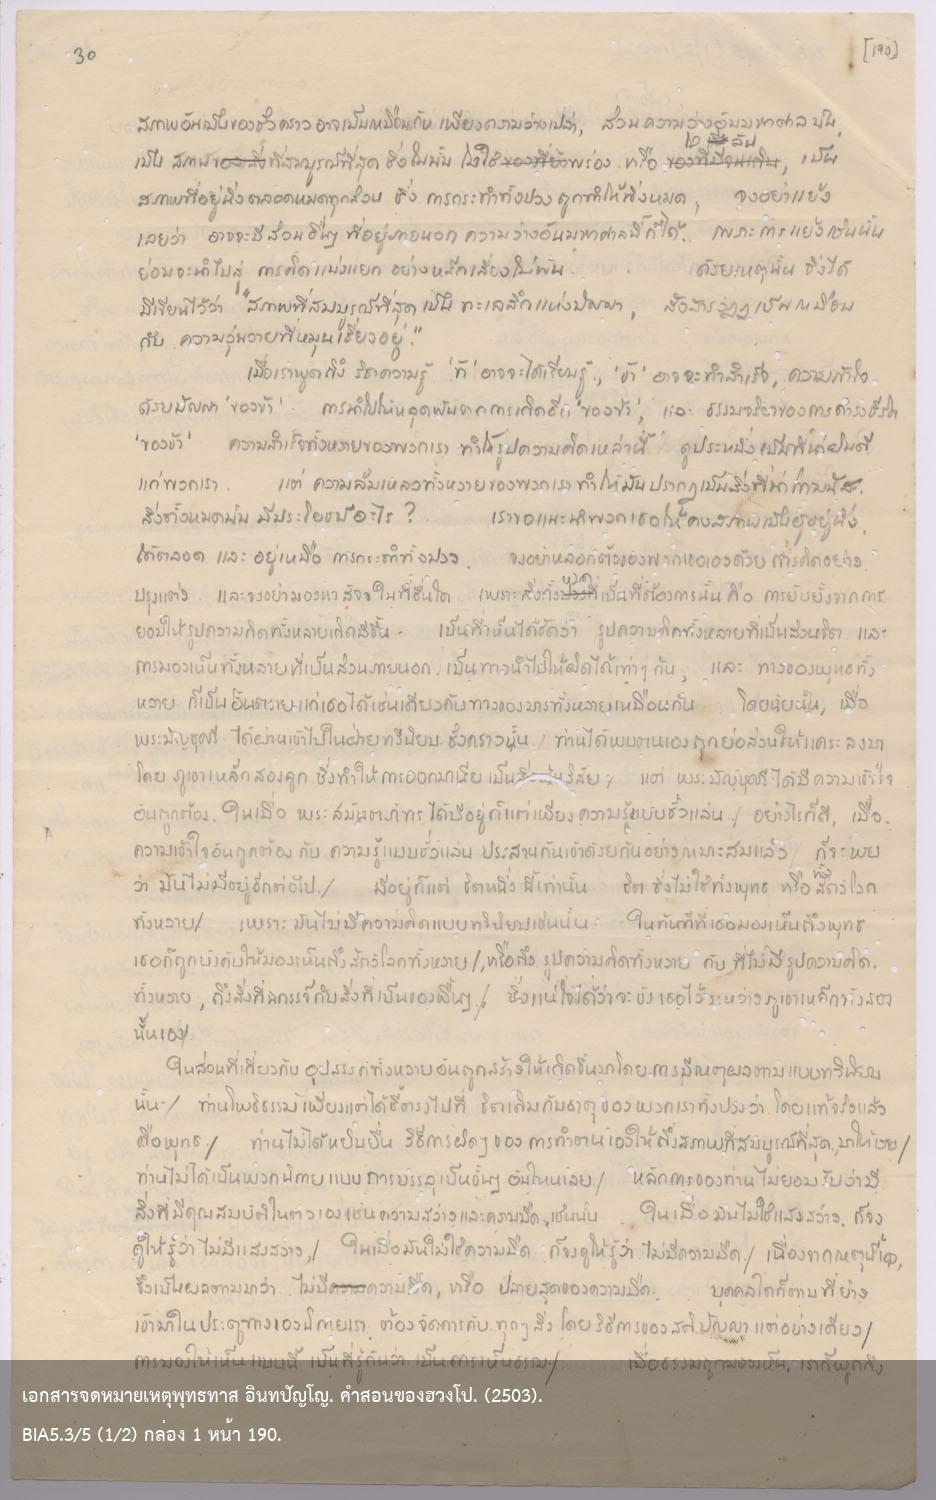 30
[190]
สภาพอันเป็นของชั่วคราว อาจเป็นเหมือนกับ เพียงความว่างเปล่า, ส่วนความว่างอันมหาศาลนั้น,
เป็น สภาพ ที่สมบูรณ์ที่สุด ซึ่งในนั้น พร่อง หรือ , เป็น
สภาพที่อยู่นิ่งตลอดหมดทุกส่วน ซึ่ง การกระทำทั้งปวง ถูกทำให้นิ่งหมด, จงอย่าแย้ง
เลยว่า อาจจะมีส่วนอื่นๆ ที่อยู่ภายนอก ความว่างอันมหาศาลนี้ก็ได้. เพราะการแย้งเช่นนั้น
ย่อมจะนำไปสู่ การคิดแบ่งแยก อย่างหลีกเลี่ยงไม่พ้น. ด้วยเหตุนั้น ซึ่งได้
มีเขียนไว้ว่า "สภาพที่สมบูรณ์ที่สุด เป็น ทะเลลึกแห่งปัญญา, สังสารวัฏฏ์ เป็นเหมือน
กับ ความวุ่นวายที่หมุนเวียนอยู่."
เมื่อเราพูดถึง วิชาความรู้ 'ข้า' อาจจะได้เรียนรู้, 'ข้า' อาจจะทำสำเร็จ, ความเข้าใจ
ด้วยปัญญา 'ของข้า' การทำให้หลุดพ้นจากการเกิดอีก 'ของข้า', และ ธรรมจริยาของการดำรงชีวิต
'ของข้า' ความสำเร็จทั้งหลายของพวกเรา ทำให้รูปความคิดเหล่านี้ ดูประหนึ่งเป็นที่น่ายินดี
แก่พวกเรา. แต่ ความล้มเหลวทั้งหลายของพวกเรา ทำให้มันปรากฏเป็นสิ่งที่น่า
สิ่งทั้งหมดนั้น มีประโยชน์อะไร? เราขอแนะนำพวกเธอให้คงสภาพเป็นผู้อยู่นิ่ง
ได้ตลอด และ อยู่เหนือ การกระทำทั้งปวง. จงอย่าหลอกตัวของพวกเธอเองด้วย การคิดอย่าง
ปรุงแต่ง และจงอย่ามองหาสัจจะในที่อื่นใด เพราะสิ่งทั้ง ที่เป็นที่ต้องการนั้น คือ การยับยั้งจากการ
ยอมให้รูปความคิดทั้งหลายเกิดมีขึ้น. เป็นที่เห็นได้ชัดว่า รูปความคิดทั้งหลายที่เป็นส่วนจิต และ
การมองเห็นทั้งหลายที่เป็นส่วนภายนอก เป็นทางนำไปให้ผิดได้เท่าๆ กัน, และ ทางของพุทธะทั้ง
หลาย ก็เป็นอันตรายแก่เธอได้เช่นเดียวกับทางของมารทั้งหลายเหมือนกัน โดยนัยนั้น, เมื่อ
พระมัญชุศรี ได้ผ่านเข้าไปในฝ่ายทวินิยม ชั่วคราวนั้น / ท่านได้พบตนเอง ถูกย่อส่วนให้แคระลงมา
โดย ภูเขาเหล็กสองลูก ซึ่งทำให้การออกมานั้น เป็น แต่ พระมัญชุศรี ได้มีความเข้าใจ
อันถูกต้อง. ในเมื่อ พระสมันตภัทร ได้มีอยู่ก็แต่เพียง ความรู้แบบชั่วแล่น / อย่างไรก็ดี, เมื่อ
ความเข้าใจอันถูกต้อง กับ ความรู้แบบชั่วแล่น ประสานกันเข้าด้วยกันอย่างเหมาะสมแล้ว ก็จะพบ
ว่า มันไม่มีอยู่อีกต่อไป. / มีอยู่ก็แต่ จิตหนึ่ง นี้เท่านั้น จิต ซึ่งไม่ใช่ทั้งพุทธะ หรือทั้งสัตว์โลก
ทั้งหลาย / เพราะมันไม่มีความคิดแบบทวินิยมเช่นนั้น ในทันทีที่เธอมองเห็นถึงพุทธะ
เธอก็ถูกบังคับให้มองเห็นถึงสัตว์โลกทั้งหลาย /, หรือถึง รูปความคิดทั้งหลาย กับ ที่ไม่มีรูปความคิด.
ทั้งหลาย, ถึงสิ่งที่ กับสิ่งที่เป็นของอื่นๆ. / ซึ่งแน่ใจได้ว่าจะขังเธอไว้ระหว่างภูเขาเหล็กทั้งสอง
นั้นเอง /
ในส่วนที่เกี่ยวกับ อุปสรรคทั้งหลายอันถูกสร้างให้เกิดขึ้นมาโดยการมีเหตุผลตามแบบทวินิยม
นั้น / ท่านโพธิธรรม เพียงแต่ได้ชี้ตรงไปที่ จิตเดิมกับธาตุของพวกเราทั้งปวงว่า โดยแท้จริงแล้ว
คือพุทธะ. / ท่านไม่ได้หยิบยื่น วิธีการผิดๆ ของ การทำตนเองให้ถึงสภาพที่สมบูรณ์ที่สุด มาให้เลย /
ท่านไม่ได้เป็นพวกนิกายแบบ การบรรลุเป็นขั้นๆ อันไหนเลย / หลักการของท่าน ไม่ยอมรับว่ามี
สิ่งที่มีคุณสมบัติในตัวเอง เช่นความสว่างและความมืด เช่นนั้น ในเมื่อมันไม่ใช่แสงสว่าง ก็จง
ดูให้รู้ว่า ไม่มีแสงสว่าง, / ในเมื่อมันไม่ใช่ความมืด ก็จงดูให้รู้ว่า ไม่มีความมืด. / เนื่องจากเหตุนี้เอง,
จึงเป็นผลตามมาว่า ไม่มีความมืด, หรือ ปลายสุดของความมืด. บุคคลใดก็ตามที่ย่าง
เข้ามาในประตูทางของนิกายเรา ต้องจัดการกับ ทุกๆ สิ่ง โดย วิธีการของ สติปัญญา แต่อย่างเดียว /
การมองให้เห็นแบบนี้ เป็นที่รู้กันว่า เป็นการเห็นธรรม / เมื่อธรรมถูกมองเห็น, เราก็พูดถึง
เอกสารจดหมายเหตุพุทธทาส อินทปัญโญ. คำสอนของฮวงโป. (2503).
BIA5.3/5 (1/2) กล่อง 1 หน้า 190.